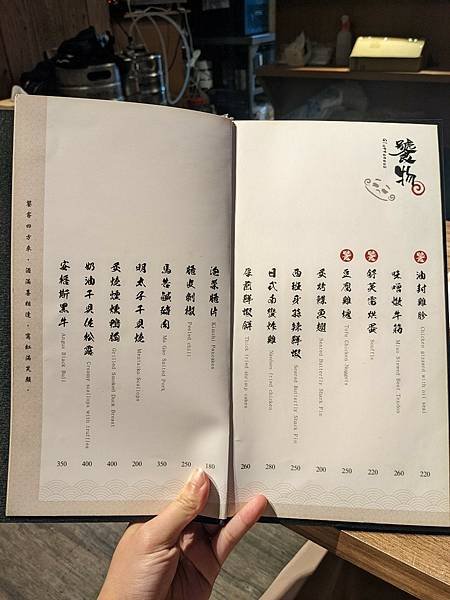 饕物
Gluttonous
饕 油封雞胗 Chicken gizzard with oil seal 220
味噌燉牛筋 Miso Stewed Beef Tendon 260
饕 舒芙雷烘蛋 Souffle 200
饕 豆腐雞塊 Tofu Chicken Nuggets 250
炙烤鰈魚翅 Seared Butterfly Shark Fin 200
西班牙蒜辣鮮蝦 250
日式南蠻炸雞 Nanban fried chicken 280
厚煎鮮蝦餅 Thick fried shrimp cakes 260
泡菜脆片 Kimchi Pancakes 180
脆皮剝椒 Peeled chili 250
馬告鹹豬肉 Ma Gao Salted Pork 350
明太子干貝燒 Mentaiko Scallops 200
炙燒煙燻鴨胸 Grilled Smoked Duck Breast 400
奶油干貝佐松露 Creamy scallops with truffles 400
安格斯黑牛 Angus Black Bull 350
饕客四方來，酒滿喜相逢，駕駁滿笑顏。